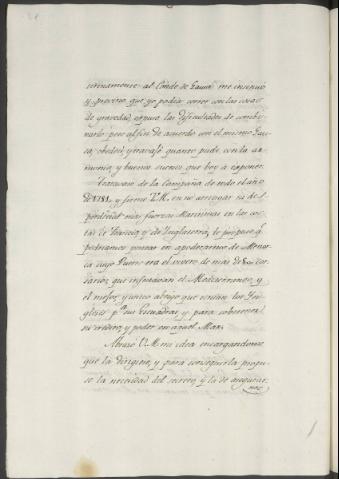 al Conde de Gausa me insinuó
y previno que yo podia correr con las cosas
de gravedad, expuse las dificultades de combi-
narlo pero al fin de acuerdo con el mismo Gau-
sa, obedecí y trabajé quanto pude con la ar-
monia, y buenos sucesos que boy á exponer.
Tratavase de la Campaña de todo el año
de 1781, y firme V.M. en no arriesgar ni des-
perdiciar mas fuerzas Maritimas en las cos-
tas de Francia y de Inglaterra, le propuse q.
podriamos pensar en apoderarnos de Menor-
ca cuyo Puerto era el vivero de mas de 80 cor-
sarios que infestavan el Mediterraneo, y
el mejor, y unico abrigo que tenian los In-
gleses p.ª sus Esquadras y para sobstener
su credito, y poder en aquel Mar.
Abrazó V.M. mi idea encargandome
que la dirigiese, y para conseguirla propu-
se la necesidad del secreto, y la de asegurar-
nos